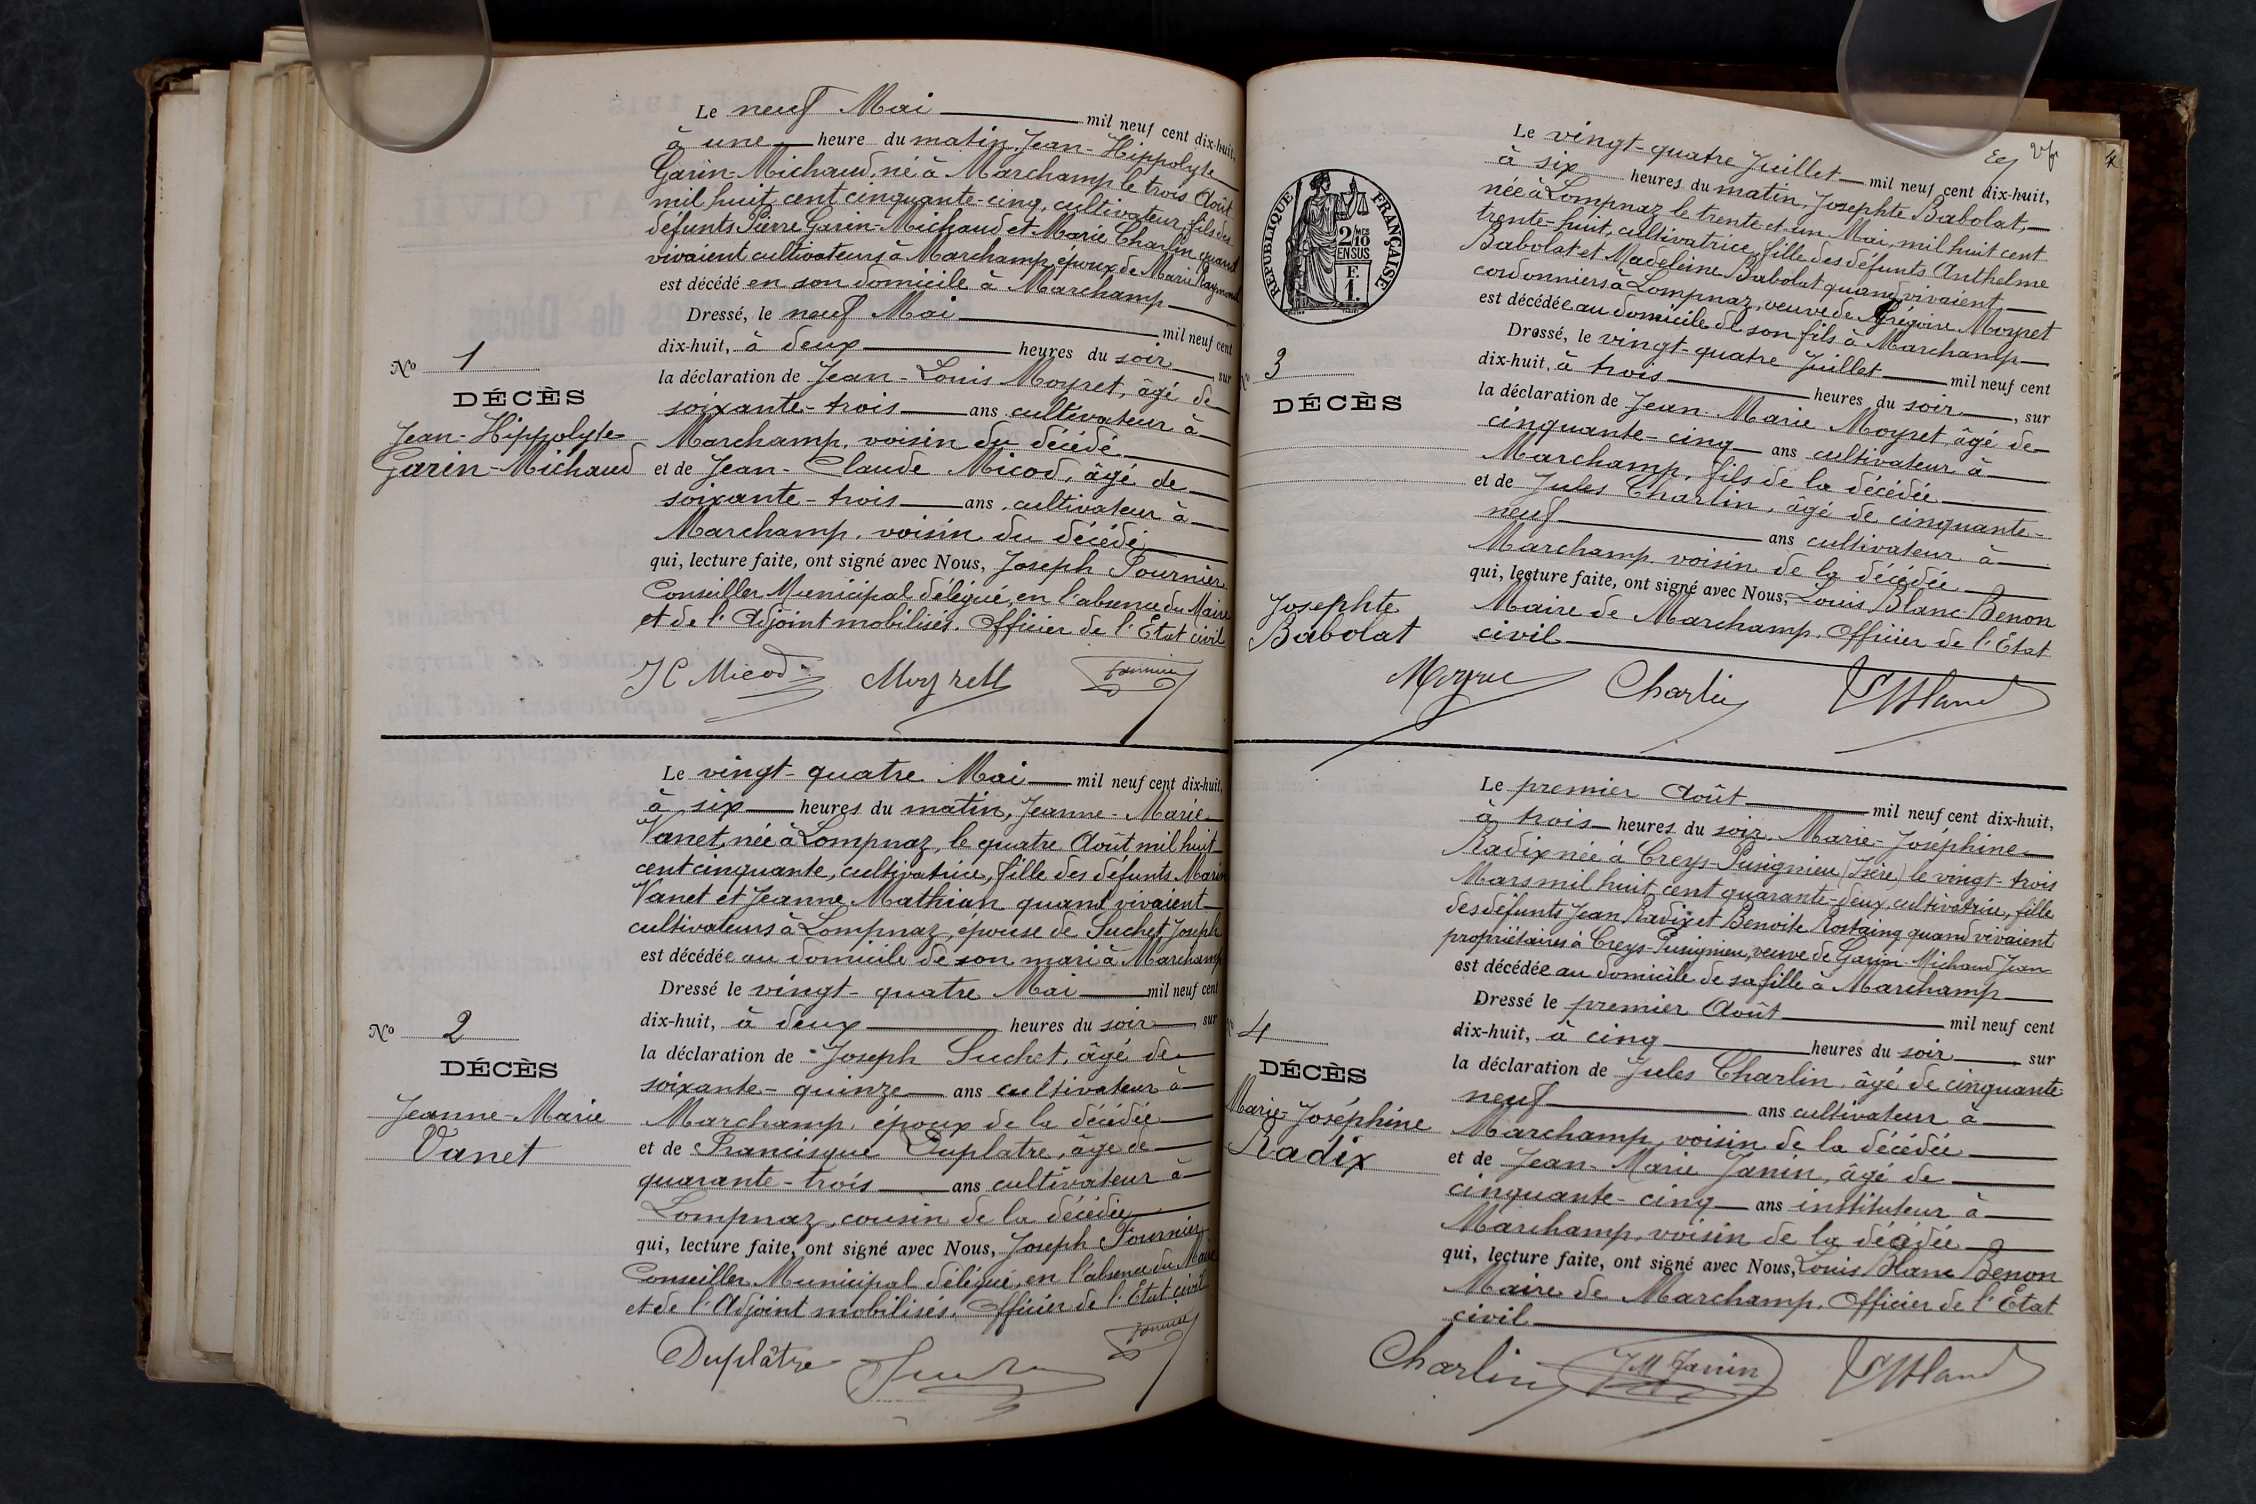 Le neuf Mai mil neuf cent dix-huit,
à une heure du matin, Jean-Hippolyte
Garin-Michaud, né à Marchamp le trois Août
mil huit cent cinquante-cinq, cultivateur, fils des
défunts Pierre Garin-Michaud et Marie Charlin quand
vivaient cultivateurs à Marchamp, époux de Marie Raymond
est décédé en son domicile à Marchamp
Dressé, le neuf Mai mil neuf cent
dix-huit, à deux heures du soir, sur
la déclaration de Jean-Louis Moyret, âgé de
soixante-trois ans cultivateur à
Marchamp, voisin du décédé
et de Jean-Claude Micod, âgé de
soixante-trois ans, cultivateur à
Marchamp, voisin du décédé
qui, lecture faite, ont signé avec Nous, Joseph Fournier
Conseiller Municipal délégué, en l'absence du Maire
et de l'Adjoint mobilisés. Officier de l'Etat civil
JC Micod Moyrett Fournier
No 1
DÉCÈS
Jean-Hippolyte
Garin-Michaud
Le vingt-quatre Mai mil neuf cent dix-huit,
à six heures du matin, Jeanne-Marie
Vanet, née à Lompnaz, le quatre Août mil huit
cent cinquante, cultivatrice, fille des défunts Marin
Vanet et Jeanne Mathian quand vivaient
cultivateurs à Lompnaz, épouse de Suchet Joseph
est décédée au domicile de son mari à Marchamp
Dressé le vingt-quatre Mai mil neuf cent
dix-huit, à deux heures du soir, sur
la déclaration de Joseph Suchet, âgé de
soixante-quinze ans cultivateur à
Marchamp, époux de la décédée
et de Francisque Duplatre, âgé de
quarante-trois ans cultivateur à
Lompnaz, cousin de la décédée
qui, lecture faite, ont signé avec Nous, Joseph Fournier
Conseiller Municipal délégué, en l'absence du Maire
et de l'Adjoint mobilisés. Officier de l'Etat civil
Duplâtre Fournier
No 2
DÉCÈS
Jeanne-Marie
Vanet
Le vingt-quatre Juillet mil neuf cent dix-huit,
à six heures du matin, Josephte Babolat,
née à Lompnaz le trente et un Mai, mil huit cent
trente-huit, cultivatrice, fille des défunts Anthelme
Babolat et Madeleine Babolat quand vivaient
cordonniers à Lompnaz, veuve de Grégoire Moyret
est décédée au domicile de son fils à Marchamp
Dressé, le vingt-quatre Juillet mil neuf cent
dix-huit, à trois heures du soir, sur
la déclaration de Jean-Marie Moyret, âgé de
cinquante-cinq ans cultivateur à
Marchamp, fils de la décédée
et de Jules Charlin, âgé de cinquante-
neuf ans cultivateur à
Marchamp, voisin de la décédée
qui, lecture faite, ont signé avec Nous, Louis Blanc-Benon
Maire de Marchamp. Officier de l'Etat
civil
Charlin
RÉPUBLIQUE FRANÇAISE
2/10 MES
EN SUS
F.
1.
3
DÉCÈS
Josephte
Babolat
Le premier Août mil neuf cent dix-huit,
à trois heures du soir, Marie-Joséphine
Radix née à Creys-Pusignieu (Isère) le vingt-trois
Mars mil huit cent quarante-deux, cultivatrice, fille
des défunts Jean Radix et Benoite Rostaing quand vivaient
propriétaires à Creys-Pusignieu, veuve de Garin-Michaud Jean
est décédée au domicile de sa fille à Marchamp
Dressé le premier Août mil neuf cent
dix-huit, à cinq heures du soir, sur
la déclaration de Jules Charlin, âgé de cinquante-
neuf ans cultivateur à
Marchamp, voisin de la décédée
et de Jean-Marie Janin, âgé de
cinquante-cinq ans instituteur à
Marchamp, voisin de la décédée
qui, lecture faite, ont signé avec Nous, Louis Blanc Benon
Maire de Marchamp. Officier de l'Etat
civil
Charlin JM Janin
4
DÉCÈS
Marie-Joséphine
Radix